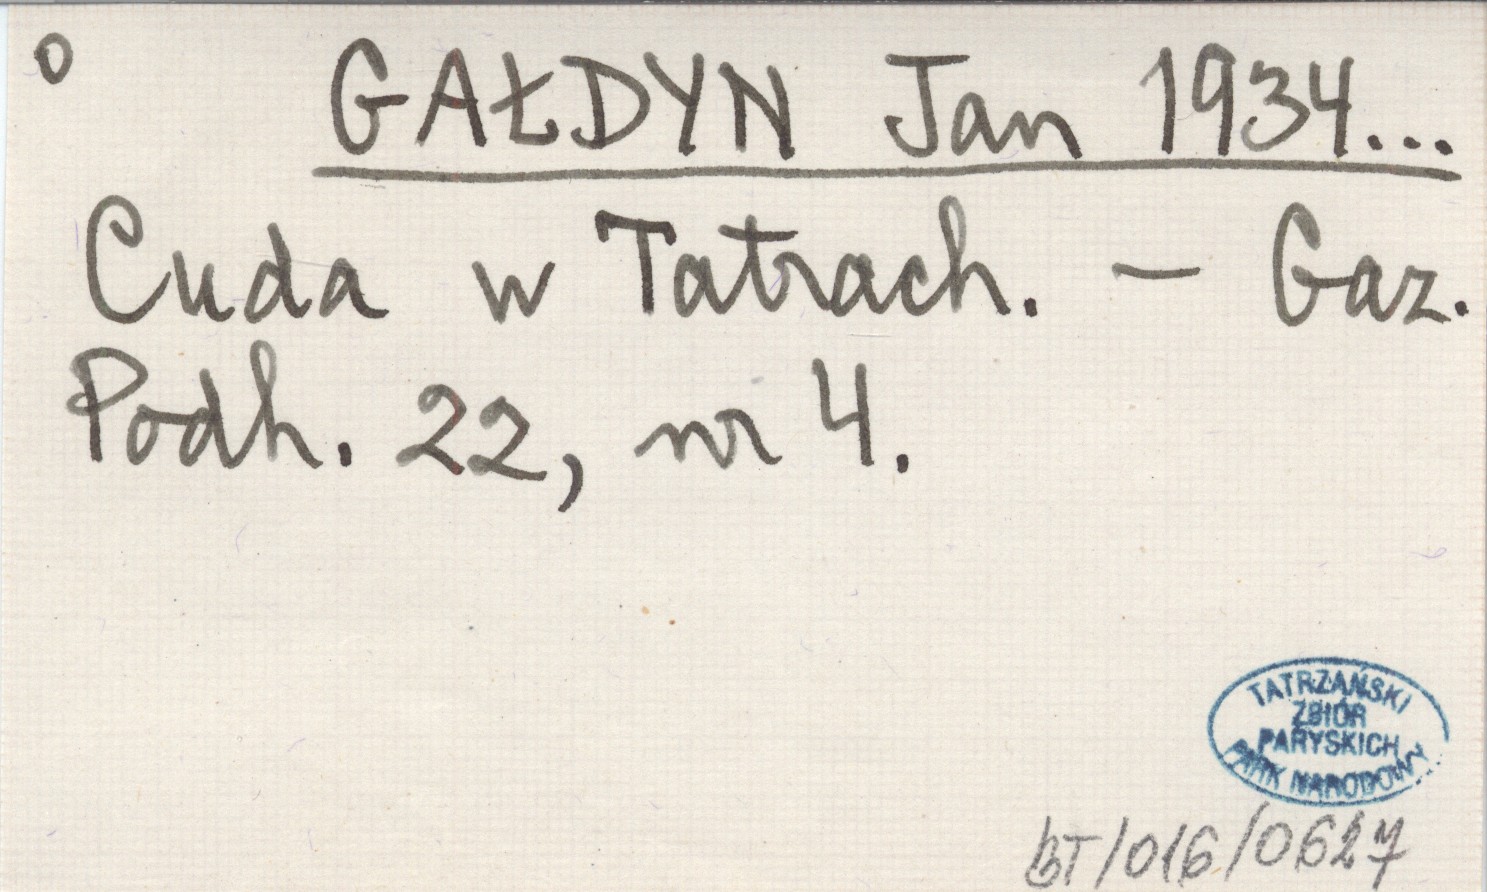 o GAŁDYN Jan 1934...
Cuda w Tatrach. — Gaz.
Podh. 22, nr 4.
TATRZAŃSKI
ZBIÓR
PARYSKICH
PARK NARODOWY
BT/016/0627